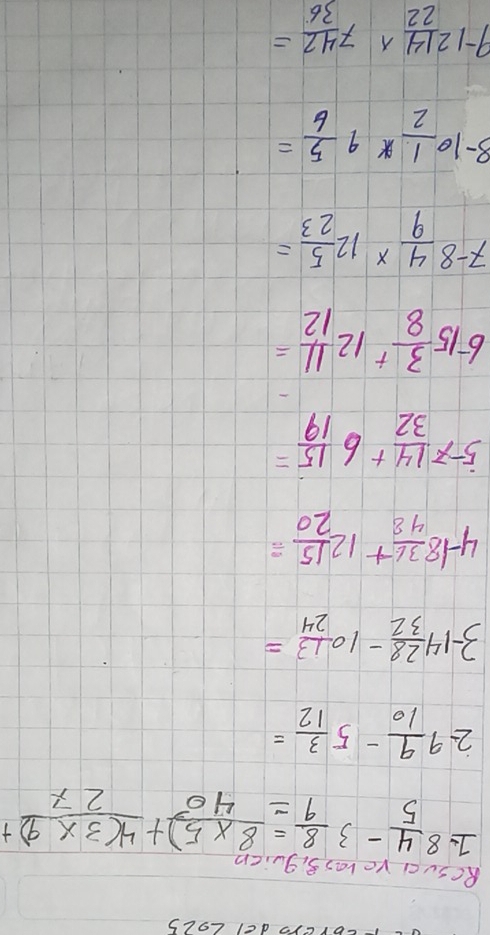 Febrero del 2025
Resuel ve las siguien
1-8 4/5 - 3 8/9 = 8x5)+4(3x9)+
40 = 27
2-9 9/10 - 5 3/12 =
3-14 28/32 - 10 13/24 =
4-18 36/48 + 12 15/20 =
5-7 14/32 + 6 15/19 =
6-15 3/8 + 12 11/12 =
7-8 4/9 x 12 5/23 =
8-10 1/2 x 9 5/6 =
9-12 14/22 x 7 42/36 =